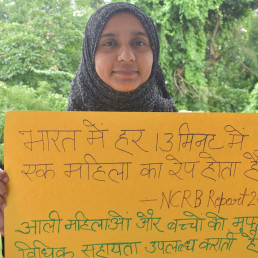 भारत में हर 13 मिनट में
एक महिला का रेप होता है
— NCRB Report 2
आली महिलाओं और बच्चो को मुफ्
विधिक सहायता उपलब्ध कराती है